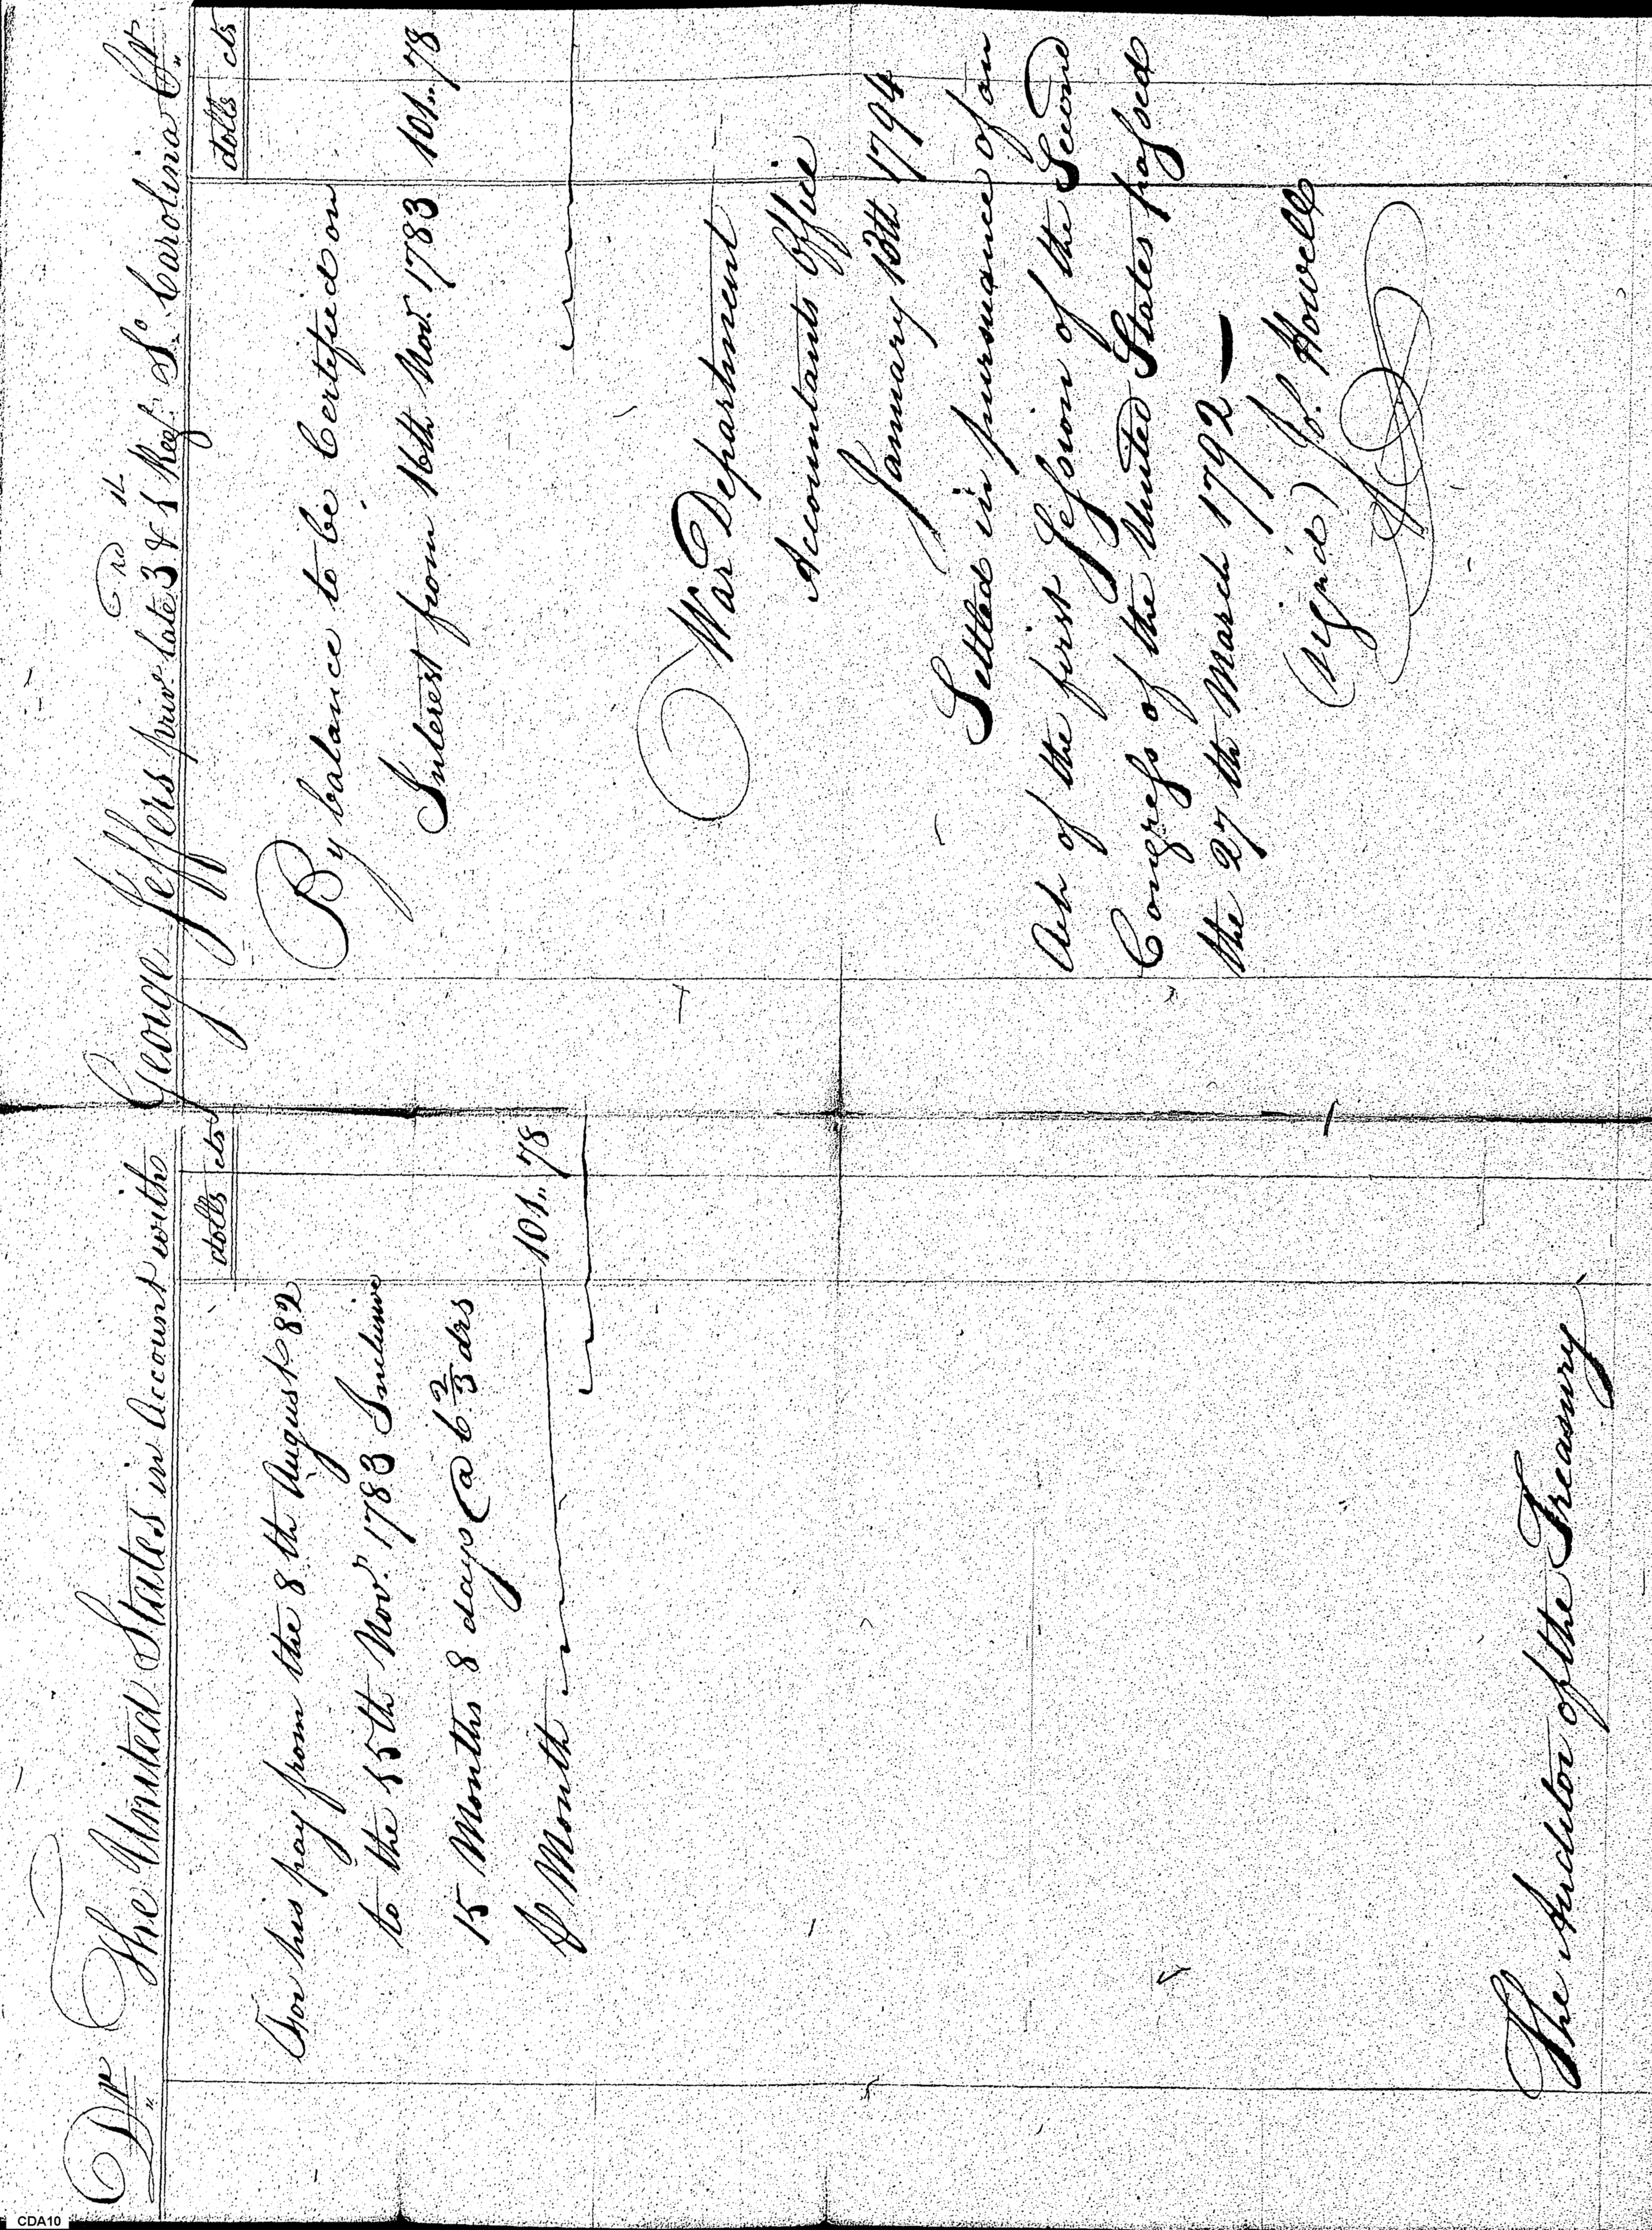 Dr The United States in Account with George Jeffers priv.r late 3rd & 1st Reg.t So. Carolina Cr
dolls cts
For his pay from the 8th August 82
to the 15th Nov.r 1783 Inclusive
15 Months 8 days @ 6 2/3 drs
P Month 101 " 78
The Auditor of the Treasury
dolls cts
By balance to be Certified on
Interest from 16th Nov.r 1783 101 " 78
War Department
Accountants Office
January 13th 1794
Settled in pursuance of an
Act of the first Session of the Second
Congress of the United States passed
the 27th March 1792 —
(Sign'd) Jo. Howell
CDA10